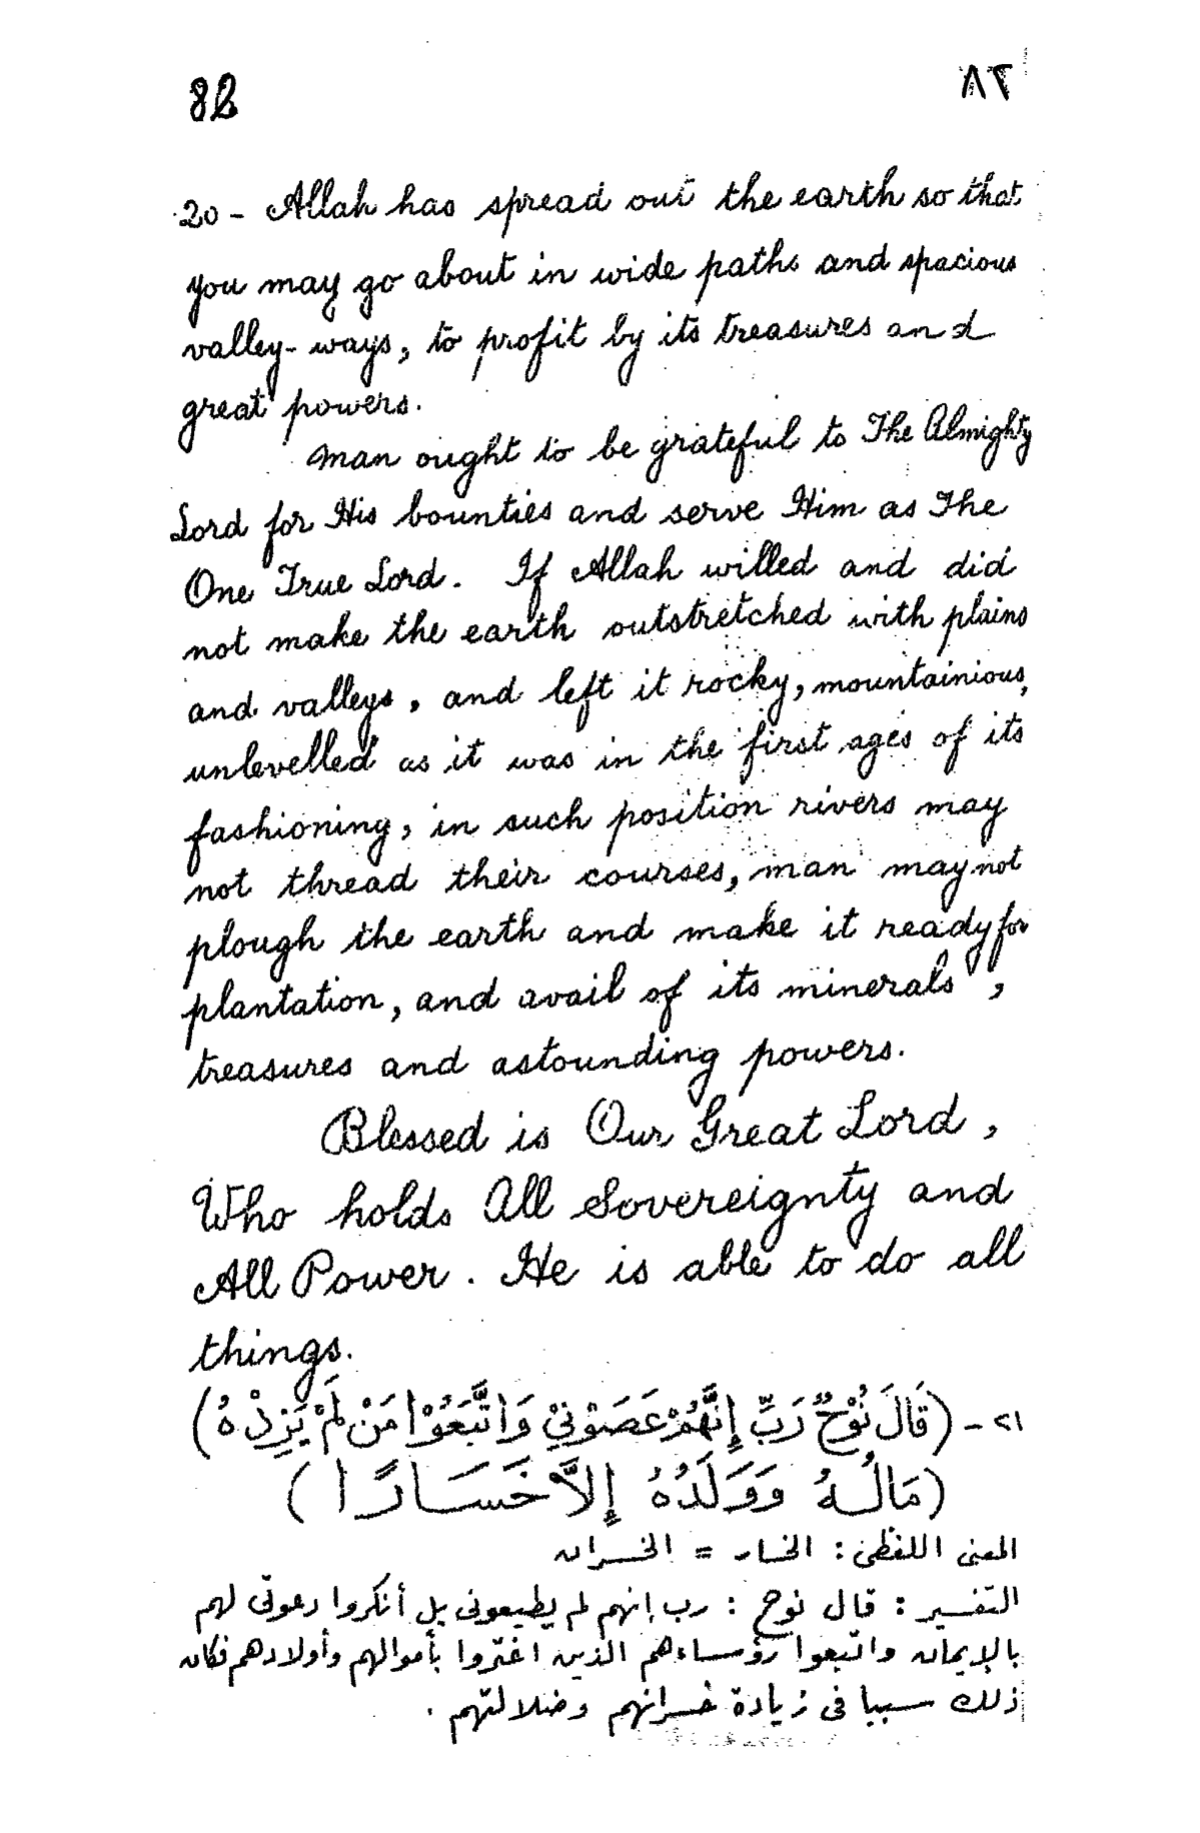 82
٨٢
20 - Allah has spread out the earth so that
you may go about in wide paths and spacious
valley-ways, to profit by its treasures and
great powers.
Man ought to be grateful to The Almighty
Lord for His bounties and serve Him as The
One True Lord. If Allah willed and did
not make the earth outstretched with plains
and valleys, and left it rocky, mountainious,
unlevelled as it was in the first ages of its
fashioning, in such position rivers may
not thread their courses, man may not
plough the earth and make it ready for
plantation, and avail of its minerals,
treasures and astounding powers.
Blessed is Our Great Lord,
Who holds All Sovereignty and
All Power. He is able to do all
things.
٢١ - (قَالَ نُوْحٌ رَبِّ إِنَّهُمْ عَصَوْنِيْ وَاتَّبَعُوْا مَنْ لَمْ يَزِدْهُ)
(مَالُهُ وَوَلَدُهُ إِلاَّ خَسَارًا)
المعنى اللفظى : الخسار = الخسران
التفسير : قال نوح : رب إنهم لم يطيعونى بل أنكروا دعوتى لهم
بالإيمان واتبعوا رؤساءهم الذين اغتروا بأموالهم وأولادهم فكان
ذلك سببا فى زيادة خسرانهم وضلالتهم .